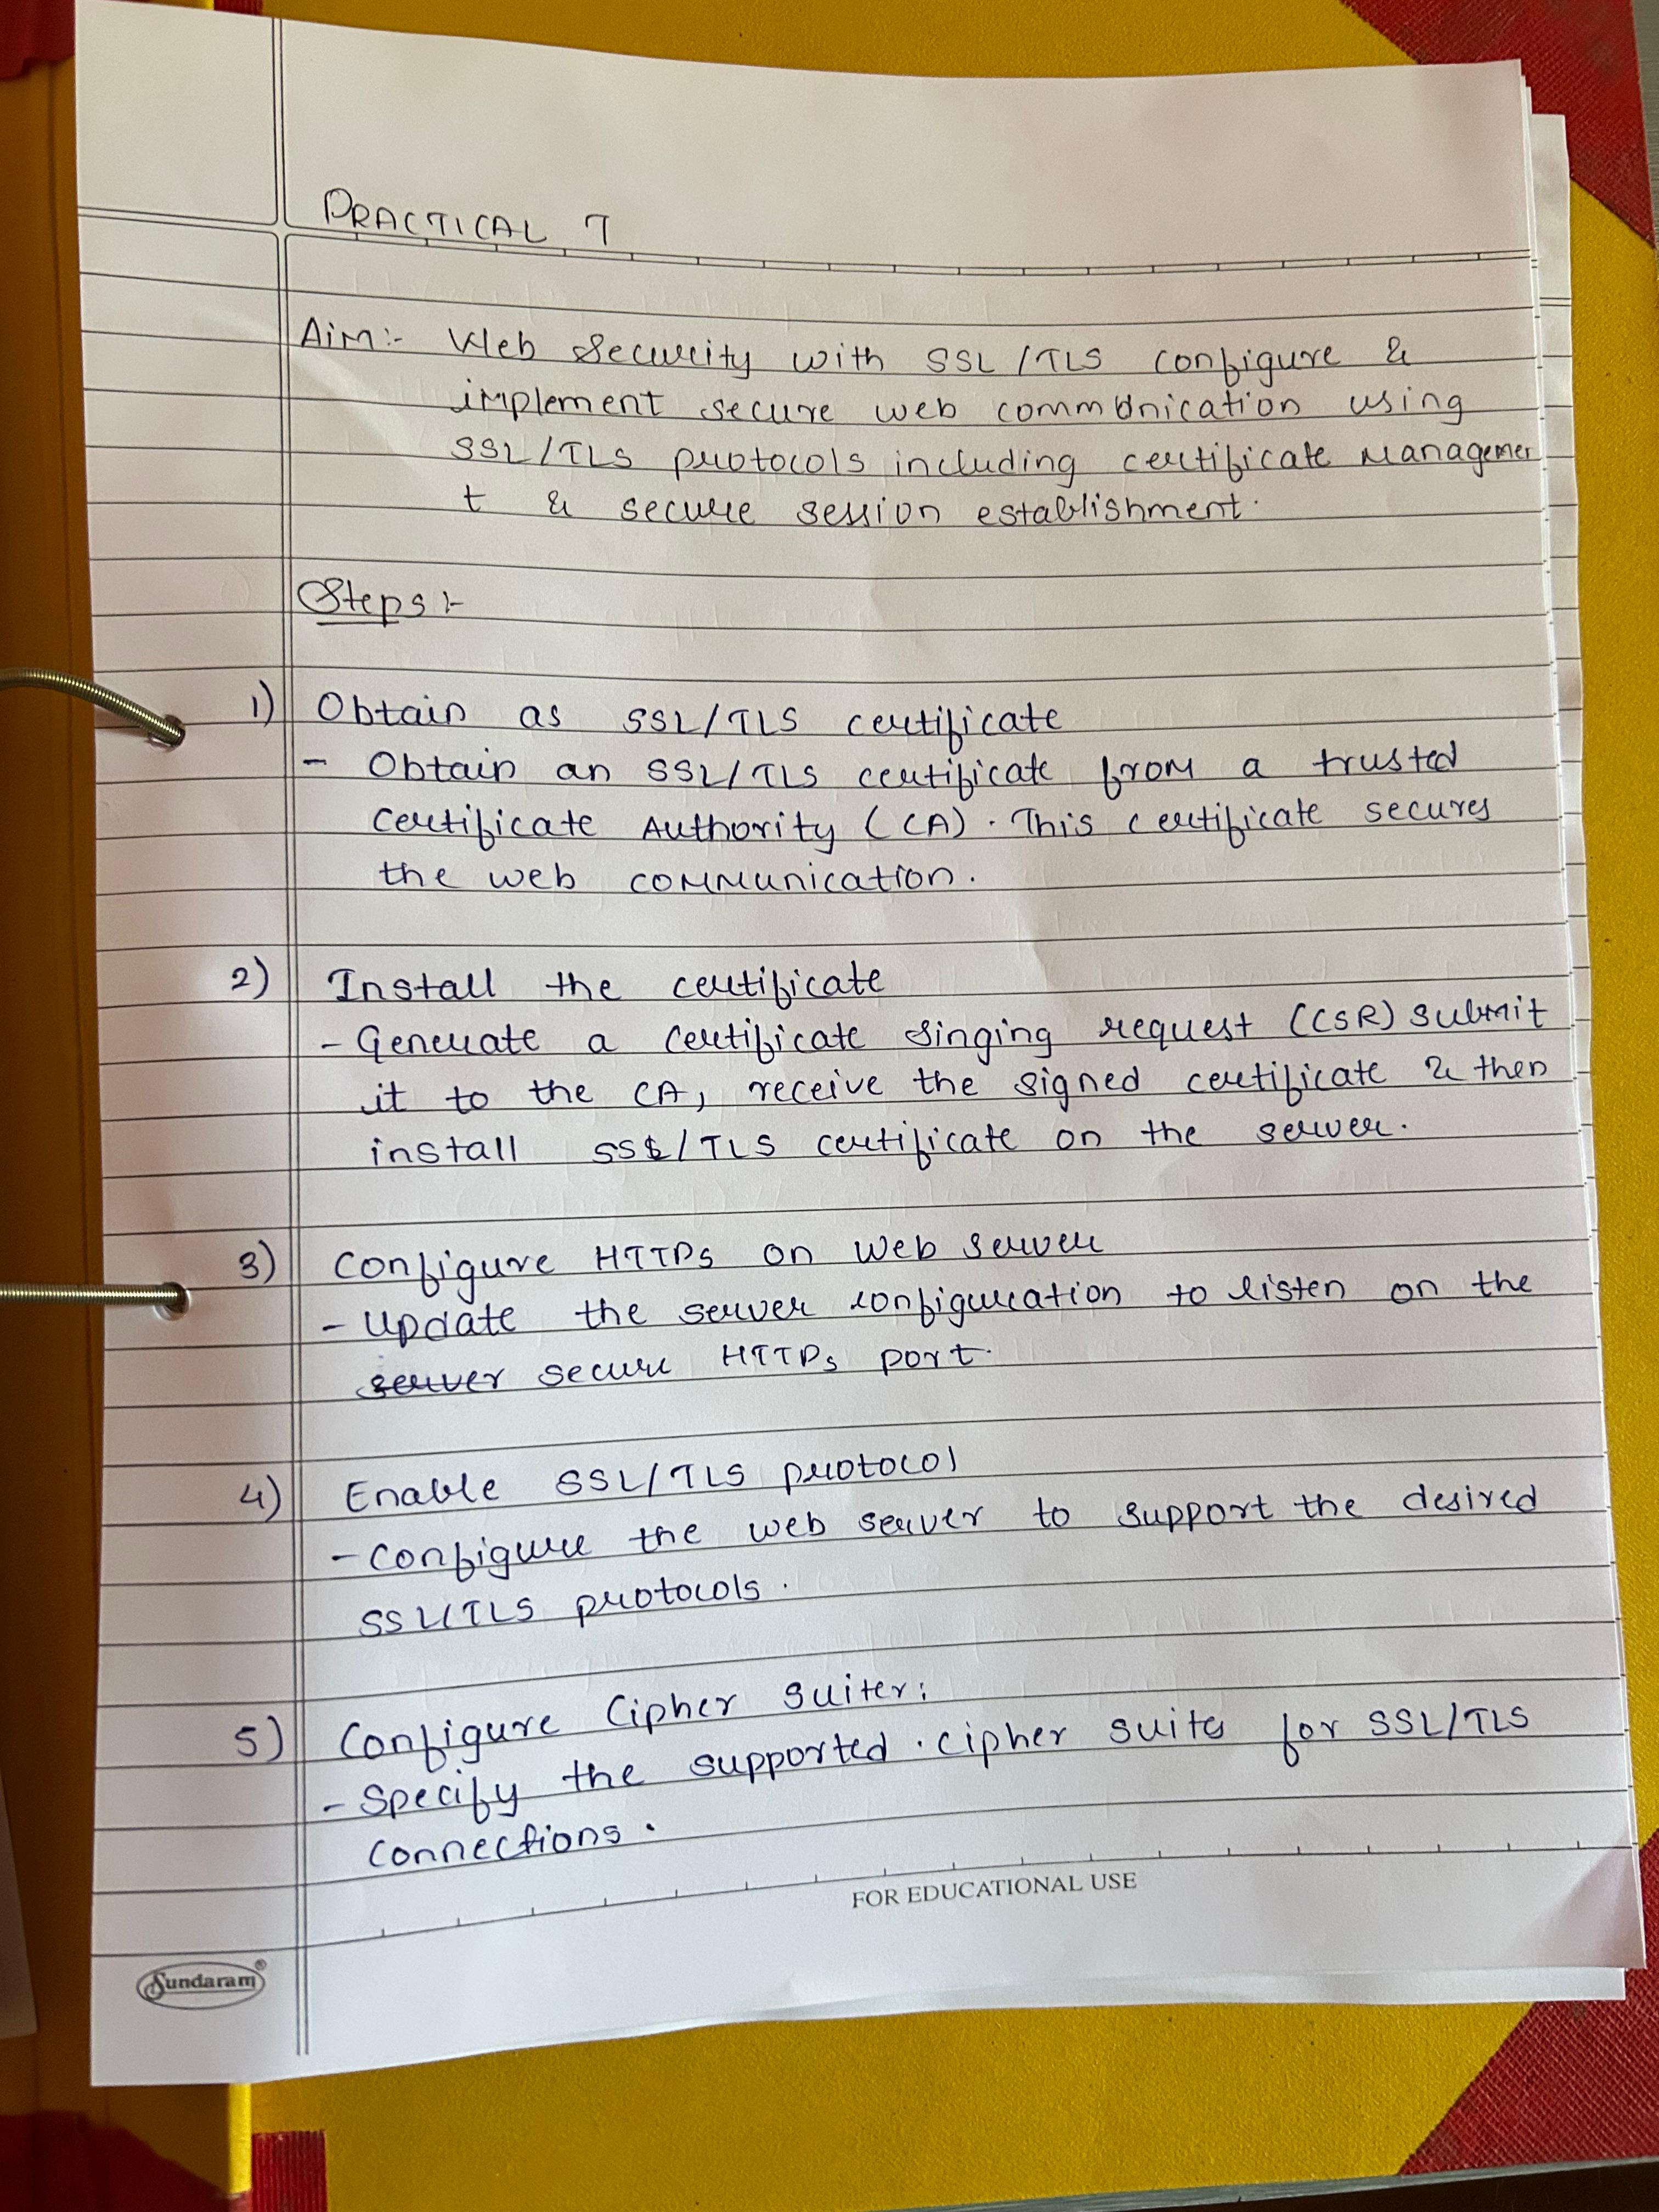 PRACTICAL 7
Aim:- Web Security with SSL/TLS configure &
implement secure web communication using
SSL/TLS protocols including certificate managemen
t & secure session establishment.
Steps :-
1) Obtain as SSL/TLS certificate
- Obtain an SSL/TLS certificate from a trusted
certificate Authority (CA). This certificate secures
the web communication.
2) Install the certificate
- Generate a certificate singing request (CSR) submit
it to the CA, receive the signed certificate & then
install SSL/TLS certificate on the server.
3) Configure HTTPs on web server
- Update the server configuration to listen on the
server secure HTTPs port.
4) Enable SSL/TLS protocol
- Configure the web server to support the desired
SSL/TLS protocols.
5) Configure Cipher suiter:
- Specify the supported. cipher suite for SSL/TLS
connections.
FOR EDUCATIONAL USE
Sundaram®